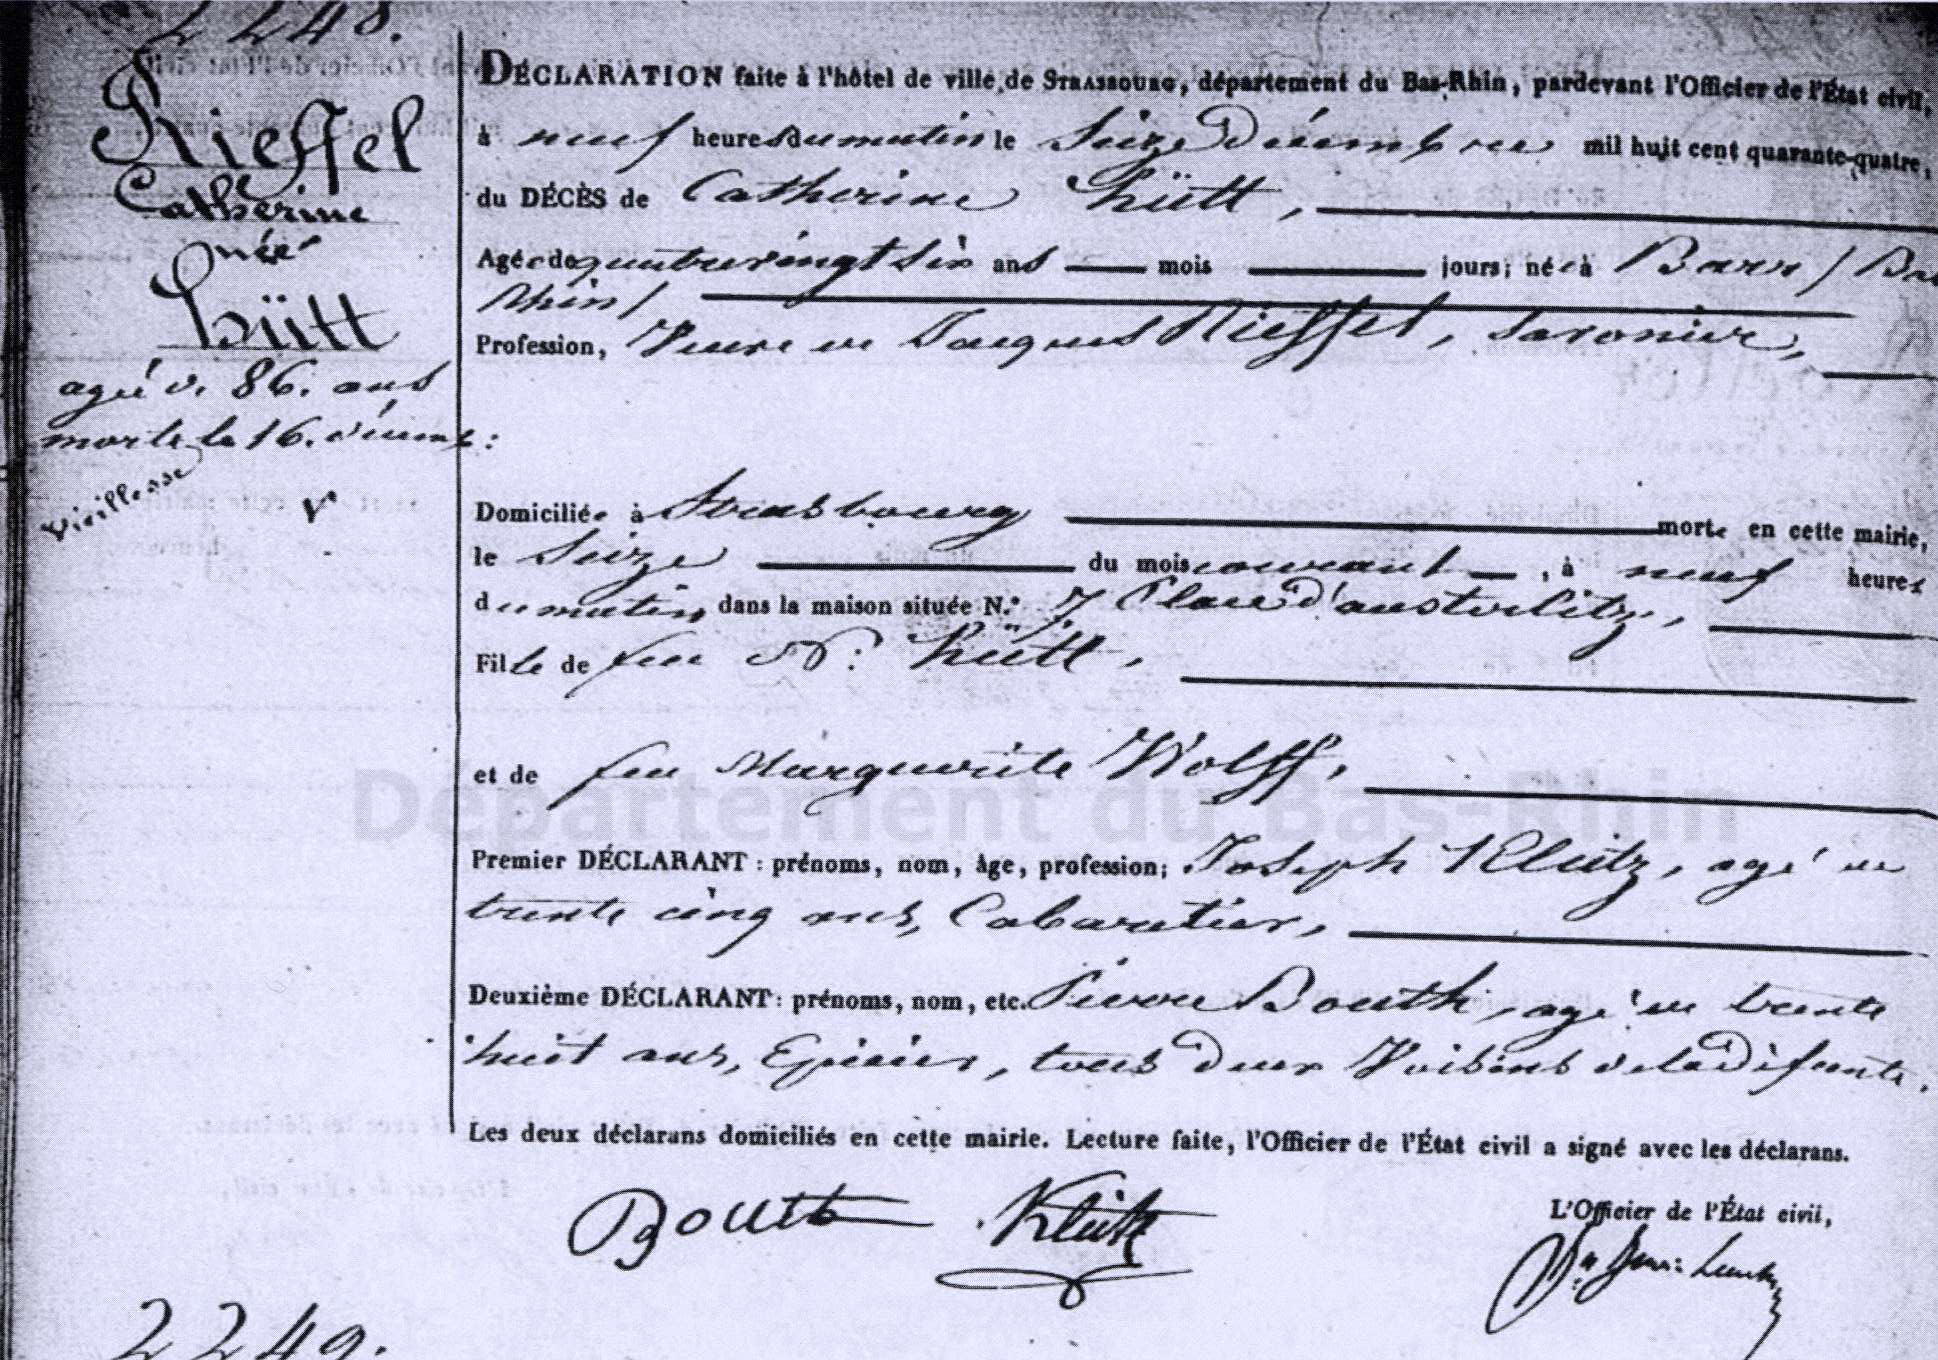 2248.
Rieffel
Catherine
née
Hütt
agée de 86. ans
morte le 16. décemb:
Vieillesse
DÉCLARATION faite à l'hôtel de ville de STRASBOURG, département du Bas-Rhin, pardevant l'Officier de l'État civil,
à neuf heures du matin le Seize Décembre mil huit cent quarante-quatre,
du DÉCÈS de Catherine Hütt,
Agée de quatrevingt Six ans mois jours; née à Barr / Bas
Rhin /
Profession, Veuve de Jacques Rieffel, Savonier,
Domiciliée à Strasbourg morte en cette mairie,
le Seize du mois courant, à neuf heures
du matin dans la maison située N.° 7 Place d'austerlitz,
Fille de feu N: Hütt,
et de feu Marguerite Wolff,
Premier DÉCLARANT : prénoms, nom, âge, profession; Joseph Kleitz, agé de
trente cinq ans, Cabaretier,
Deuxième DÉCLARANT: prénoms, nom, etc. Pierre Bouth, agé de trente
huit ans, Epicier, tous deux Voisins de la défunte.
Les deux déclarans domiciliés en cette mairie. Lecture faite, l'Officier de l'État civil a signé avec les déclarans.
Bouth Kleitz
L'Officier de l'État civil,
2249.
Département du Bas-Rhin